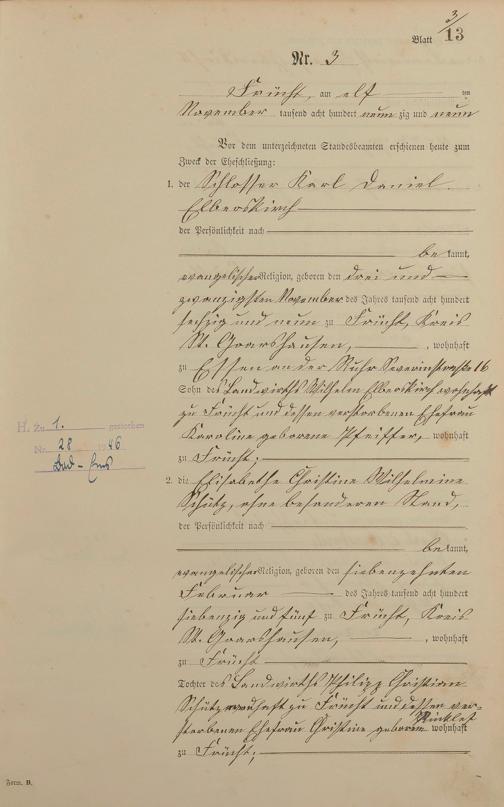 3/13
Blatt
Nr. 3
Frücht, am elf ten
November tausend acht hundert neun zig und neun
Vor dem unterzeichneten Standesbeamten erschienen heute zum
Zweck der Eheschließung:
1. der Schlosser Karl Daniel
Elberskirch
der Persönlichkeit nach
be kannt,
evangelischer Religion, geboren den drei und
zwanzigsten November des Jahres tausend acht hundert
sechzig und neun zu Frücht, Kreis
St. Goarshausen, , wohnhaft
zu Essen an der Ruhr Severinstraße 16
Sohn des Landwirths Wilhelm Elberskirch wohnhaft
zu Frücht und dessen verstorbenen Ehefrau
Karoline geborene Pfeiffer, wohnhaft
zu Frücht;
H. Zu 1. gestorben
Nr. 28 46
Bad-Ems
2. die Elisabethe Christine Wilhelmine
Schütz, ohne besonderen Stand,
der Persönlichkeit nach
be kannt,
evangelischer Religion, geboren den siebenzehnten
Februar des Jahres tausend acht hundert
siebenzig und fünf zu Frücht, Kreis
St. Goarshausen, , wohnhaft
zu Frücht
Tochter des Landwirths Philipp Christian
Schütz wohnhaft zu Frücht und dessen ver-
storbenen Ehefrau Christine geborene wohnhaft
zu Frücht;
Form. B.